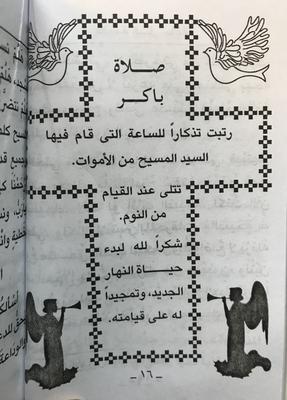 صلاة
باكر
رتبت تذكاراً للساعة التى قام فيها
السيد المسيح من الأموات.
تتلى عند القيام
من النوم.
شكراً لله لبدء
حياة النهار
الجديد، وتمجيداً
له على قيامته.
- ١٦ -